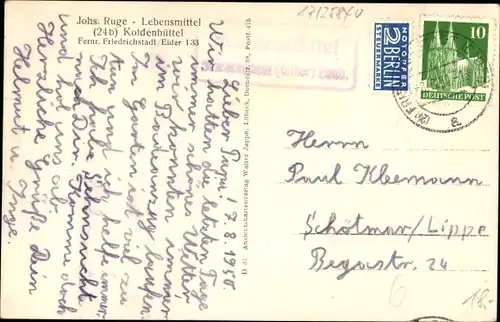 Johs. Ruge - Lebensmittel
(24b) Koldenbüttel
Fernr. Friedrichstadt/Eider 133
17125840
NOTOPFER
2 BERLIN
STEUERMARKE
10
DEUTSCHE POST
a
7.8.1950
Lieber Papa!
Wir hatten die letzten Tage
immer schönes Wetter
wir konnten immer
im Badeanzug laufen.
Im Garten ist viel zu
tun und ich helfe immer
Ich habe Sehnsucht
nach Dir. Komme doch
und hol uns ab.
Herzliche Grüße Dein
Helmut u. Inge.
D 31 Ansichtskartenverlag Walter Jappe, Lübeck, Dornestr. 58, Postf. 475
Herrn
Paul Kleemann
Schötmar/Lippe
Begastr. 24
6
18.-